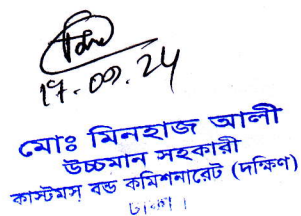 17.09.24
মোঃ মিনহাজ আলী
উচ্চমান সহকারী
কাস্টমস্ বন্ড কমিশনারেট (দক্ষিণ)
ঢাকা।